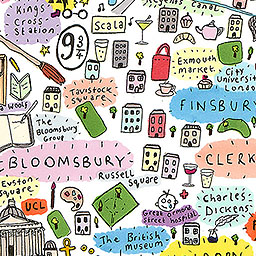 Kings
Cross
Station
9 3/4
Scala
Canal
Exmouth
market
City
University
London
Tavistock
Square
FINSBURY
Woolf
The
Bloomsbury
Group
BLOOMSBURY
CLERK
Russell
Square
Euston
Square
UCL
Great Ormond
Street hospital
Charles
Dickens
The British
museum